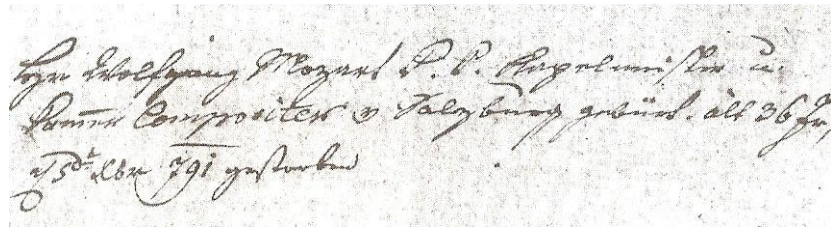 Hr Wolfgang Mozart K. K. Kapelmeister u.
Kam̄er Compositer v Salzburg gebürt. alt 36 Jr,
d 5t xbr 791 gestorben